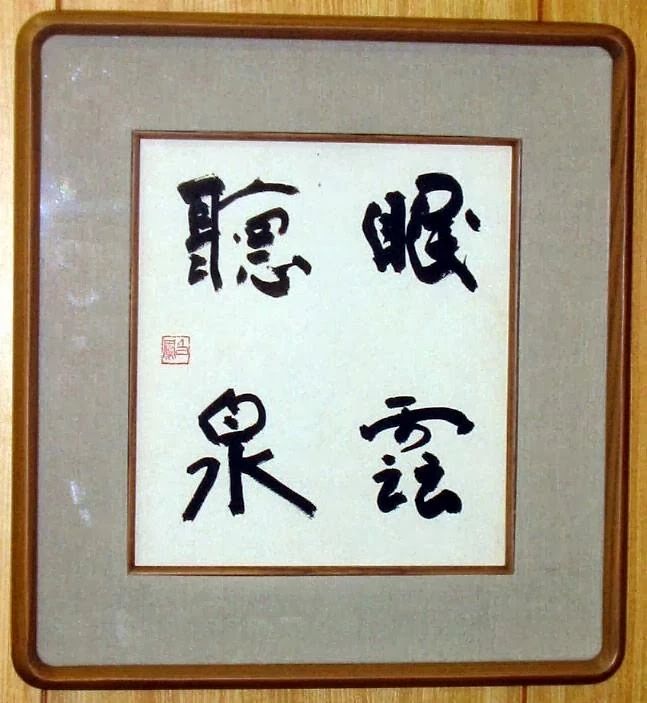 眠雲
聽泉